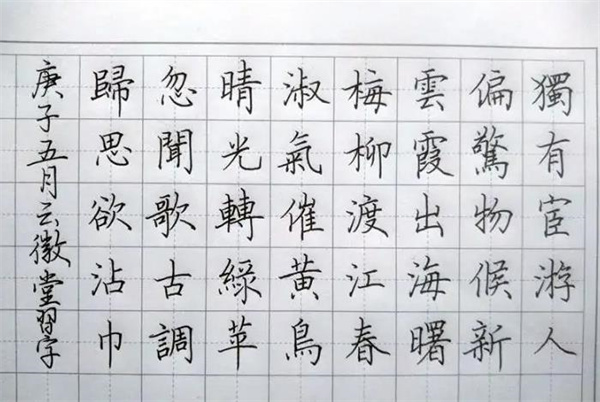 獨有宦游人
偏驚物候新
雲霞出海曙
梅柳渡江春
淑氣催黃鳥
晴光轉綠苹
忽聞歌古調
歸思欲沾巾
庚子五月云徽堂習字